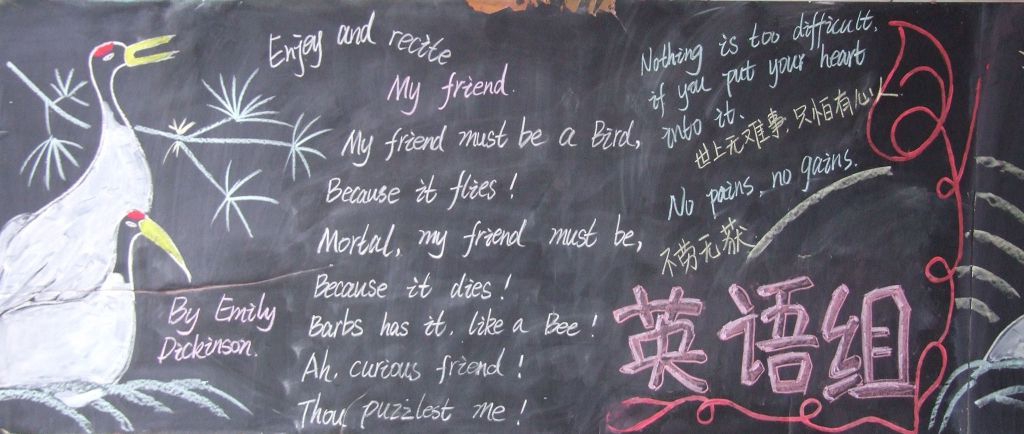 Enjoy and recite
My friend.
My friend must be a Bird,
Because it flies!
Mortal, my friend must be,
Because it dies!
Barbs has it, like a Bee!
Ah, curious friend!
Thou puzzlest me!
By Emily
Dickinson.
Nothing is too difficult,
if you put your heart
into it.
世上无难事，只怕有心人.
No pains, no gains.
不劳无获
英语组